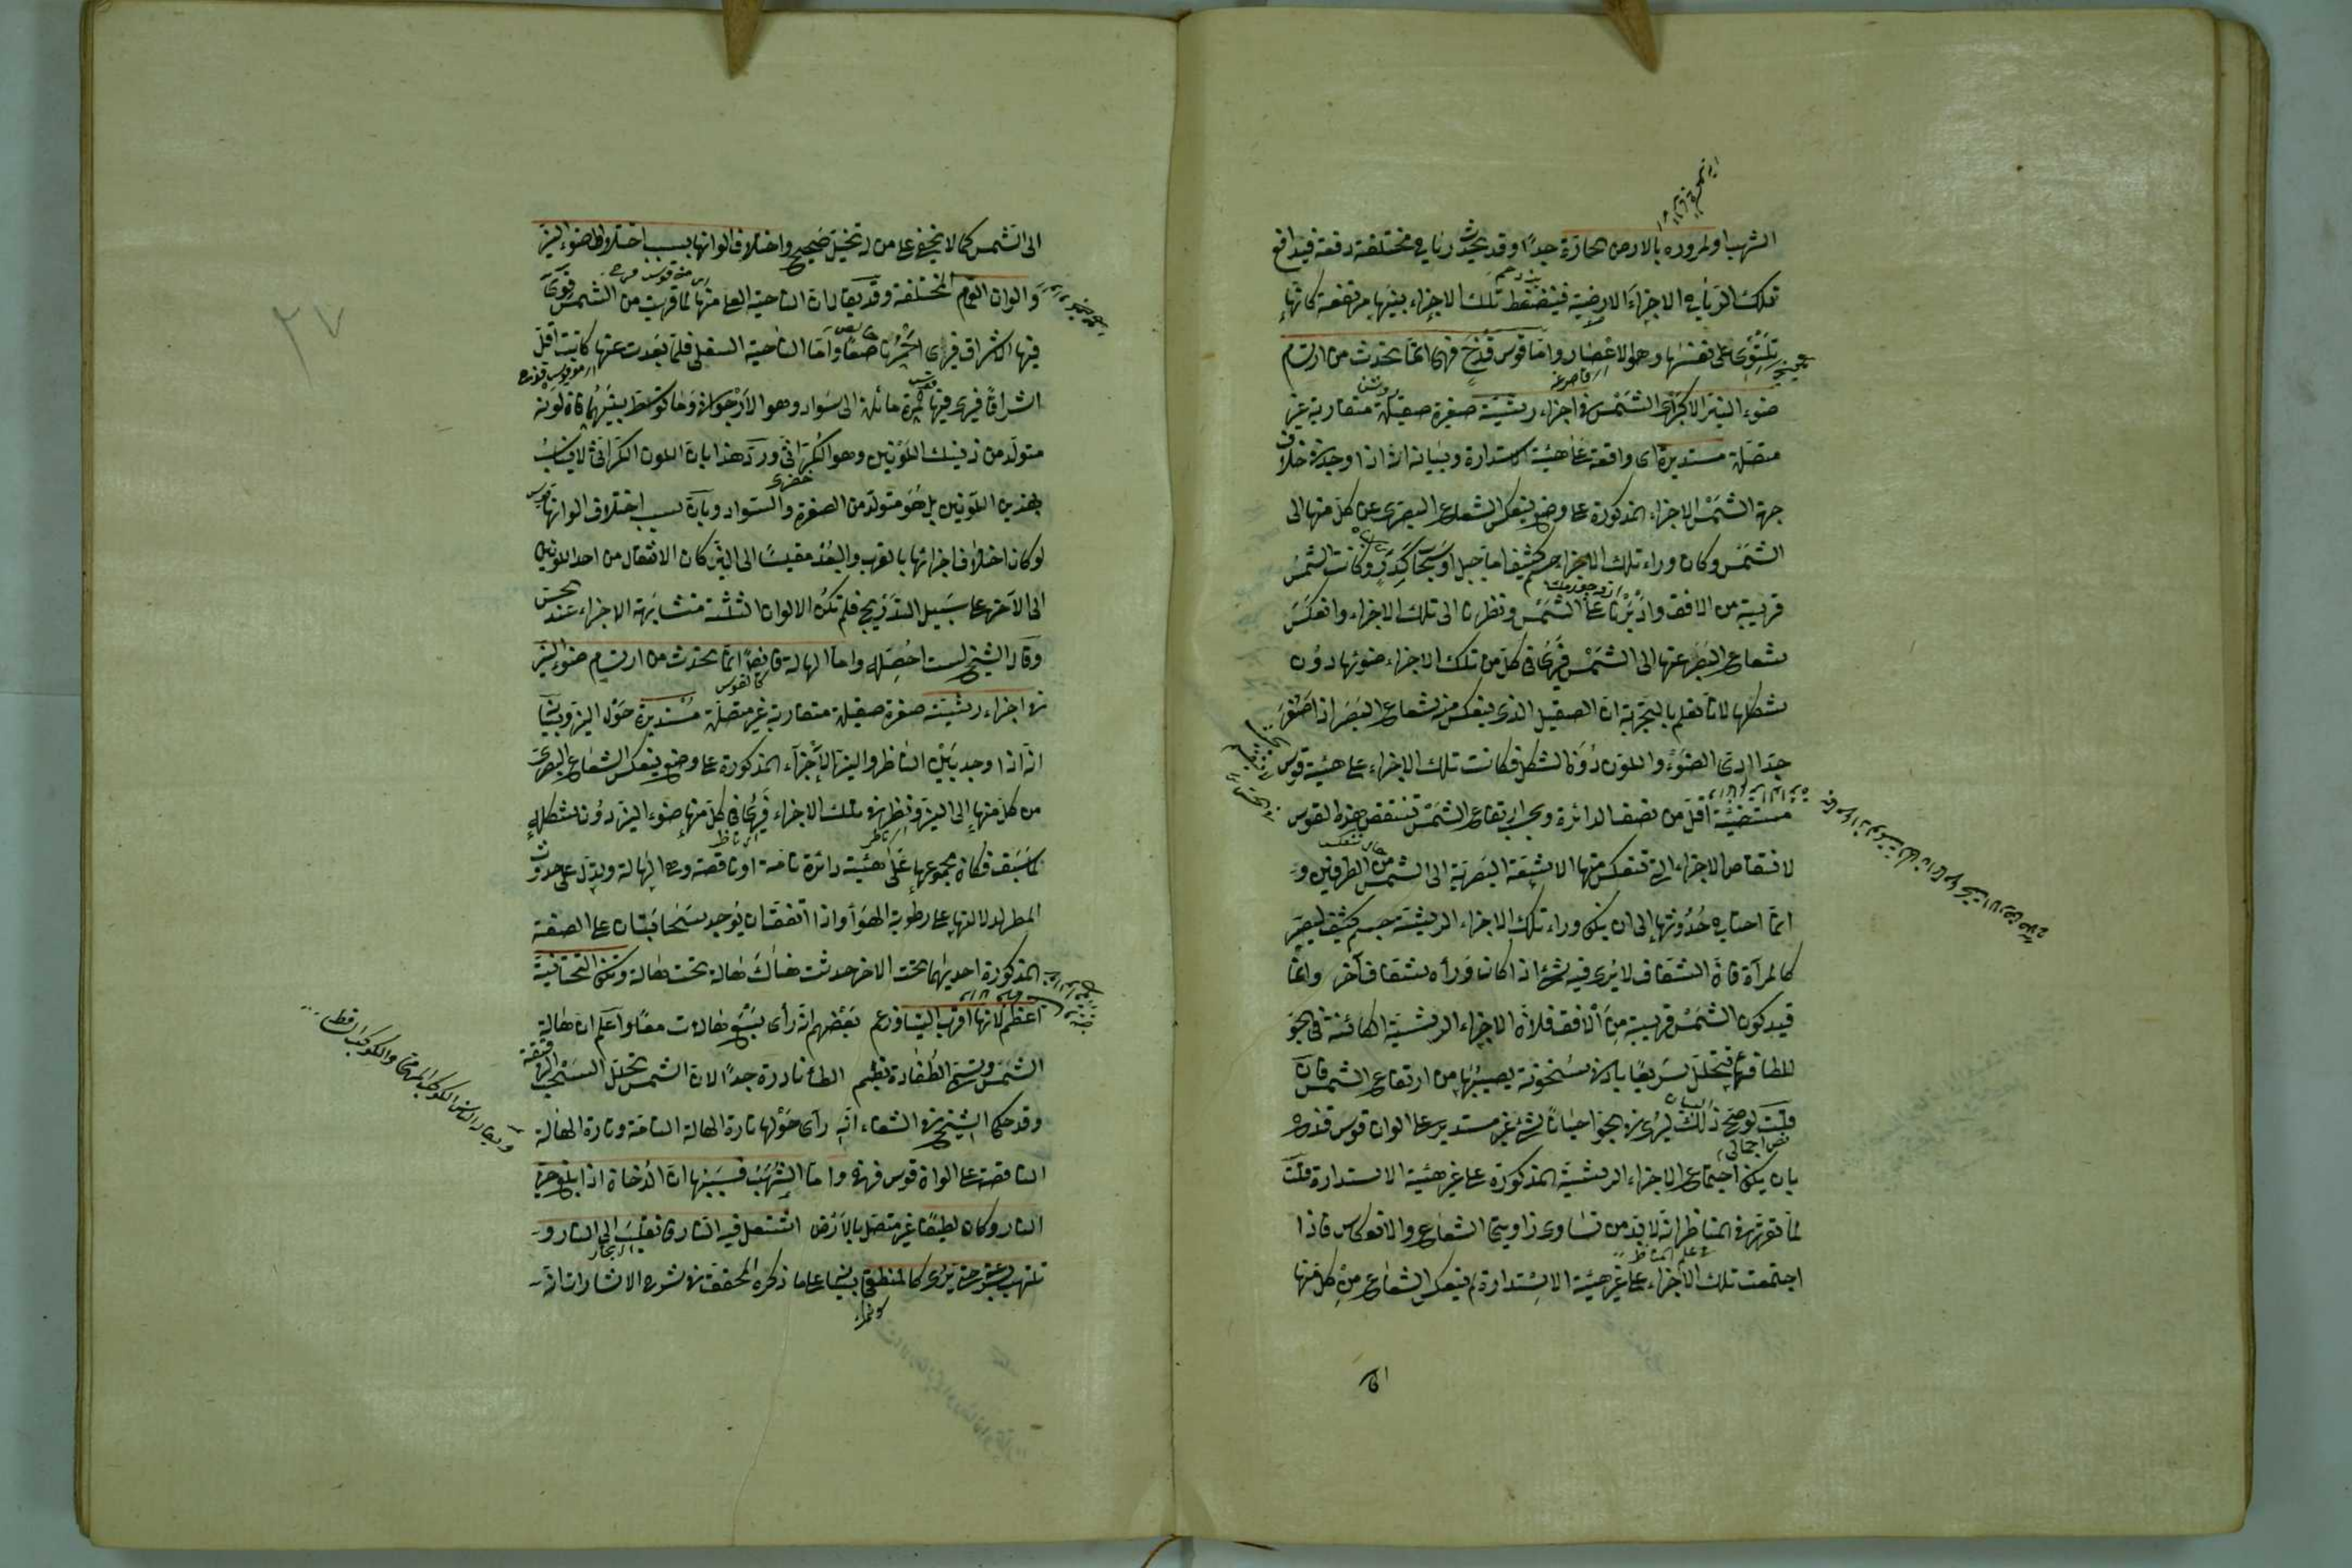 الشهب او لمروره بالارض الحارّة جدّا وقد يحدث رياح مختلفة دفعة فيدافع
تلك الرياح الاجزاء الارضية فينضغط تلك الاجزاء بينها مرتفعة كانها
تلتوى على نفسها وهو الاعصار واما قوس قزح فهى انما يحدث من ارتسام
ضوء النير الاكبر اى الشمس فى اجزاء رشيّة صغيرة صقيلة متقاربة غير
متصلة مستديرة اى واقعة على هيئة الاستدارة وبيانه انه اذا وجد فى خلاف
جهة الشمس الاجزاء المذكورة على وضع ينعكس الشعاع البصرى عن كل منها الى
الشمس وكان وراء تلك الاجزاء جسم كثيف اما جبل او سحاب كدر وكانت الشمس
قريبة من الافق وادبرنا على الشمس ونظرنا الى تلك الاجزاء وانعكس
شعاع البصر عنها الى الشمس فيرى فى كل من تلك الاجزاء ضوئها دون
شكلها لانا نعلم بالتجربة ان الصقيل الذى ينعكس منه شعاع البصر اذا صغر
جدّا ادى الضوء واللون دون الشكل فكانت تلك الاجزاء على هيئة قوس
مستضيئة اقل من نصف الدائرة وبحسب ارتفاع الشمس تنتقص هذه القوس
لانتقاص الاجزاء التى تنعكس منها الاشعة البصرية الى الشمس من الطرفين و
انما احتاج حدوثها الى ان يكن وراء تلك الاجزاء الرشية جسم كثيف ليصير
كالمرآة فان الشفاف لا يرى فيه شئ اذا كان وراءه شفاف آخر وانما
قيد كون الشمس قريبة من الافق فلان الاجزاء الرشية الكائنة فى الجو
للطافتها يتحلل سريعا بادنى سخونة يصيبها من ارتفاع الشمس فان
قلت لو صح ذلك ليرى فى الجو احيانا شئ غير مستدير على الوان قوس قزح
نقض اجمالى
بان يكن اجتماع الاجزاء الرشية المذكورة على غير هيئة الاستدارة قلت
لما تقرر فى المناظر انه لا بد من تساوى زاويتى الشعاع والانعكاس فاذا
فى علم المناظر
اجتمعت تلك الاجزاء على غير هيئة الاستدارة لم ينعكس الشعاع من كل منها
الى
٢٧
الى الشمس كما لا يخفى على من له تخيل صحيح واختلاف الوانها بسبب اختلاط ضوء النير
والوان الغيم المختلفة وقد يقال ان الناحية العليا منها لما قربت من الشمس قوى
فيها الاشراق فيرى احمر ناصعا واما الناحية السفلى فلما بعدت عنها كانت اقل
اشراقا فيرى فيها حمرة مائلة الى سواد وهو الارجوانى وما توسط بينهما فان لونه
متولد من ذينك اللونين وهو الكراثى ورد هذا بان اللون الكراثى لا يناسب
بهذين اللونين بل هو متولد من الصفرة والسواد وبان سبب اختلاف الوانها
لو كان اختلاف اجزائها بالقرب والبعد مقيسا الى النير كان الانتقال من احد اللونين
الى الآخر على سبيل التدريج فلم تكن الالوان الثلثة متشابهة الاجزاء عند الحس
وقال الشيخ لست احصله واما الهالة فايضا انما يحدث من ارتسام ضوء النير
كالقوس
فى اجزاء رشية صغيرة صقيلة متقاربة غير متصلة مستديرة حول النير وبيانه
انه اذا وجد بين الناظر والنير الاجزاء المذكورة على وضع ينعكس الشعاع البصرى
من كل منها الى النير ونظر فى تلك الاجزاء فيرى فى كل منها ضوء النير دون شكله
كما سبق فكان مجموعها على هيئة دائرة تامة او ناقصة وهى الهالة ويدل على حدوث
المطر لدلالتها على رطوبة الهواء واذا اتفق ان يوجد سحابتان على الصفة
المذكورة احديهما تحت الاخر حدثت هناك هالة تحت هالة وتكن التحتانية
اعظم لانها اقرب الينا وزعم بعضهم انه رأى سبع هالات معا واعلم ان هالة
الشمس وتسمى الطفاوة بضم الطاء نادرة جدّا لان الشمس تحلل السحب الرقيقة
وقد حكى الشيخ فى الشفاء انه رأى حولها تارة الهالة التامة وتارة الهالة
الناقصة على الوان قوس قزح واما الشهب فسببها ان الدخان اذا بلغ حيز
النار وكان لطيفا غير متصل بالارض اشتعل فيه النار فانقلب الى النار و
تلتهب بسرعة حتى يرى كالمنطفى بناء على ما ذكره المحقق فى شرح الاشارات انه